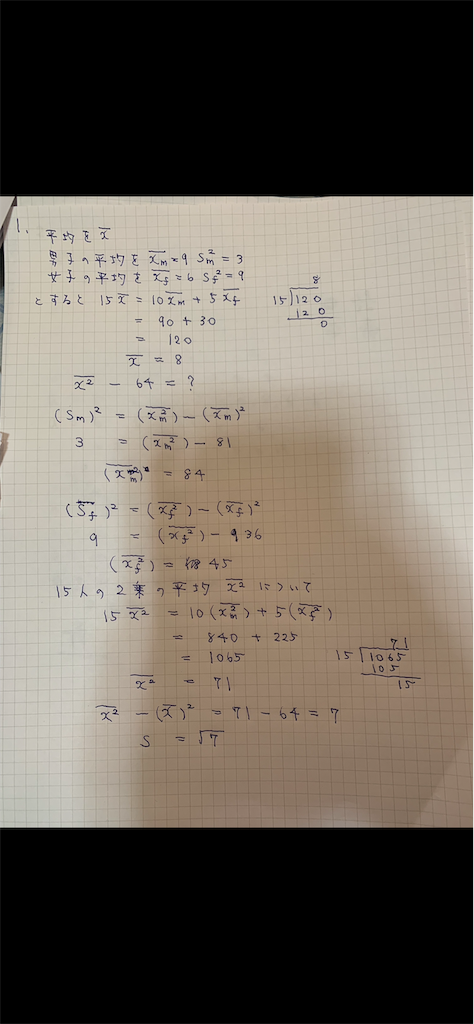 1.
平均を x̄
男子の平均を x̄m = 9 Sm² = 3
女子の平均を x̄f = 6 Sf² = 9
とすると 15x̄ = 10x̄m + 5x̄f
= 90 + 30
= 120
x̄ = 8
8
15)120
120
0
x̄² − 64 = ?
(Sm)² = (x̄m²) − (x̄m)²
3 = (x̄m²) − 81
(x̄m²) = 84
(Sf)² = (x̄f²) − (x̄f)²
9 = (x̄f²) − 36
(x̄f²) = 45
15人の2乗の平均 x̄² について
15x̄² = 10(x̄m²) + 5(x̄f²)
= 840 + 225
= 1065
x̄² = 71
71
15)1065
105
15
x̄² − (x̄)² = 71 − 64 = 7
S = √7